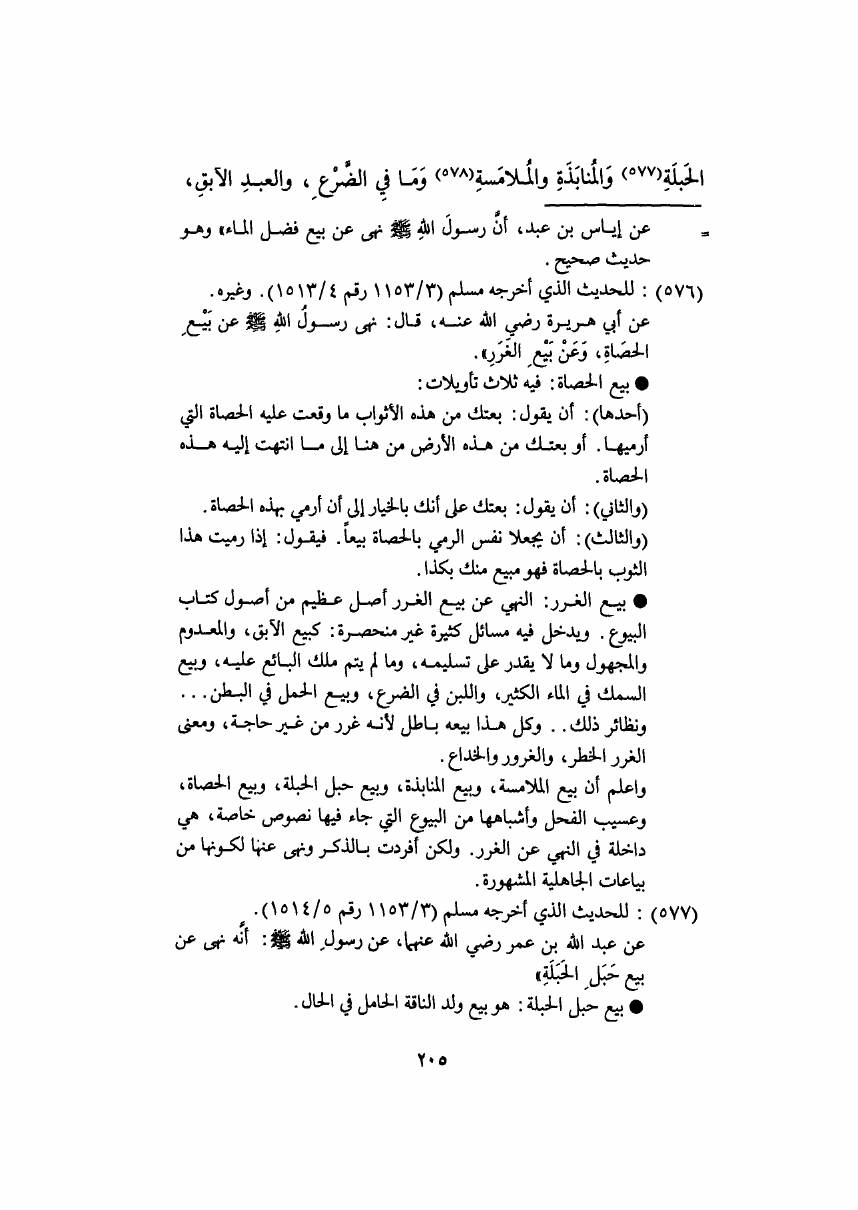 الحَبلَةِ(٥٧٧) وَالمُنابَذَةِ والمُلامَسةِ(٥٧٨) وَمَا فِي الضَّرْعِ، والعبدِ الآبقِ،
= عن إياس بن عبد، أنَّ رسولَ اللهِ ﷺ نهى عن بيع فضل الماء» وهو
حديث صحيح.
(٥٧٦) : للحديث الذي أخرجه مسلم (٣/١١٥٣ رقم ٤/١٥١٣). وغيره.
عن أبي هريرة رضي الله عنه، قال: نهى رسولُ اللهِ ﷺ عن بَيْعِ
الحصَاةِ، وَعَنْ بَيْعِ الغَرَرِ».
● بيع الحصاة: فيه ثلاث تأويلات:
(أحدها): أن يقول: بعتك من هذه الأثواب ما وقعت عليه الحصاة التي
أرميها. أو بعتك من هذه الأرض من هنا إلى ما انتهت إليه هذه
الحصاة.
(والثاني): أن يقول: بعتك على أنك بالخيار إلى أن أرمي بهذه الحصاة.
(والثالث): أن يجعلا نفس الرمي بالحصاة بيعاً. فيقول: إذا رميت هذا
الثوب بالحصاة فهو مبيع منك بكذا.
● بيع الغرر: النهي عن بيع الغرر أصل عظيم من أصول كتاب
البيوع. ويدخل فيه مسائل كثيرة غير منحصرة: كبيع الآبق، والمعدوم
والمجهول وما لا يقدر على تسليمه، وما لم يتم ملك البائع عليه، وبيع
السمك في الماء الكثير، واللبن في الضرع، وبيع الحمل في البطن...
ونظائر ذلك.. وكل هذا بيعه باطل لأنه غرر من غير حاجة، ومعنى
الغرر الخطر، والغرور والخداع.
واعلم أن بيع الملامسة، وبيع المنابذة، وبيع حبل الحبلة، وبيع الحصاة،
وعسيب الفحل وأشباهها من البيوع التي جاء فيها نصوص خاصة، هي
داخلة في النهي عن الغرر. ولكن أفردت بالذكر ونهى عنها لكونها من
بياعات الجاهلية المشهورة.
(٥٧٧) : للحديث الذي أخرجه مسلم (٣/١١٥٣ رقم ٥/١٥١٤).
عن عبد الله بن عمر رضي الله عنهما، عن رسولِ الله ﷺ: أنَّه نهى عن
بيع حَبَلِ الحَبَلَةِ»
● بيع حبل الحبلة: هو بيع ولد الناقة الحامل في الحال.
٢٠٥